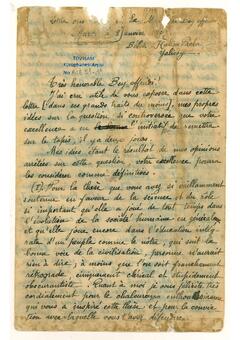 Très honorable Bey effendi!
J'ai cru utile de vous exposer dans cette
lettre (dans ses grands traits du moins), mes propres
idées sur la question si controversée que votre
excellence a eu l'initiatif de remettre
sur le tapis, il y a deux jours.
Mes idées étant le résultat de mes opinions
arrêtées sur cette question, votre excellence pourra
les considérer comme définitives.
(I) Pour la thèse que vous avez si brillamment
soutenue en faveur de la science et du rôle
si important qu'elle a joué de tout temps dans
l'évolution de la société humaine en général
et qu'elle joue encore dans l'éducation
d'un peuple comme le nôtre, qui suit la
bonne voie de la civilisation, personne n'aurait
rien à dire, à moins que l'on soit grandement
rétrograde, cléricale et stupidement
obscurantiste. Quant à moi je vous félicite très
cordialement pour le chaleureux
qui vous a inspiré cette thèse et pour la convic-
tion avec laquelle vous l'avez défendue.